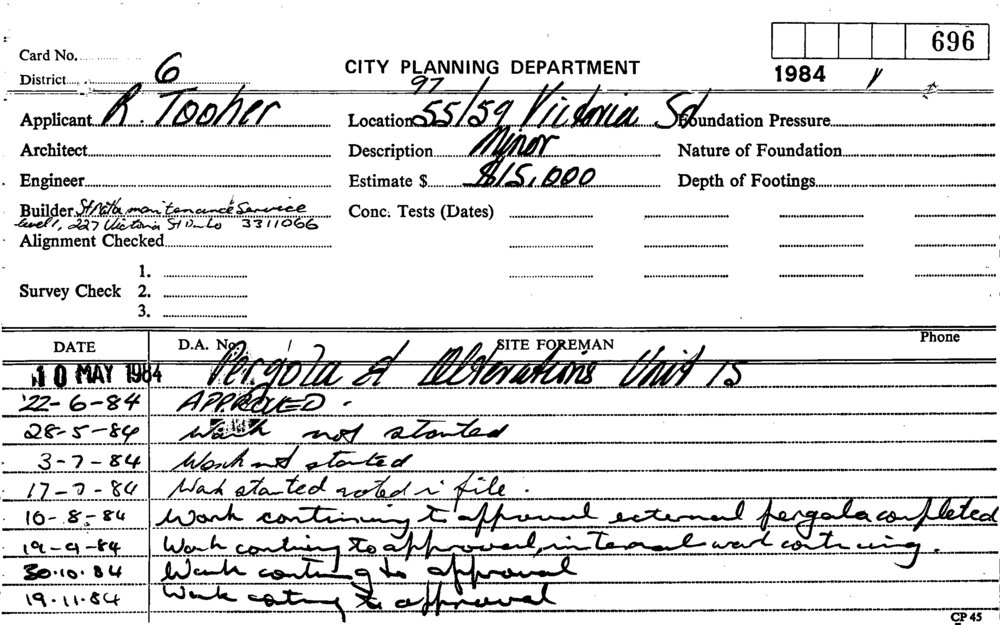 696
Card No.
District 6
CITY PLANNING DEPARTMENT
1984
97
Applicant R. Tooher
Location 55/59 Victoria St
Foundation Pressure
Architect
Description Minor
Nature of Foundation
Engineer
Estimate $ $15,000
Depth of Footings
Builder Strata maintenance Service
level 1, 227 Victoria St 3311066
Conc. Tests (Dates)
Alignment Checked
1.
Survey Check 2.
3.
DATE D.A. No. SITE FOREMAN Phone
10 MAY 1984 Pergola & Alterations Unit 15
22-6-84 APPROVED.
28-5-84 Work not started
3-7-84 Work not started
17-7-84 Work started noted i file.
10-8-84 Work continuing to approval external pergola completed
19-9-84 Work contiuing to approval, internal work contiuing.
30.10.84 Work contiuing to approval
19.11.84 Work contiuing to approval
CP 45